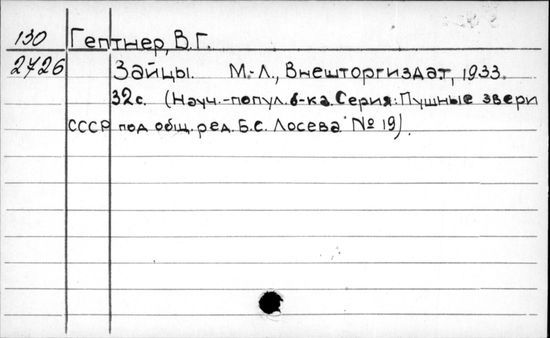 130 Гептнер, В.Г.
2726 Зайцы. М.-Л., Внешторгиздат, 1933.
32с. (Науч.-попул. б-ка. Серия: Пушные звери
СССР под общ. ред. Б.С. Лосева № 19).